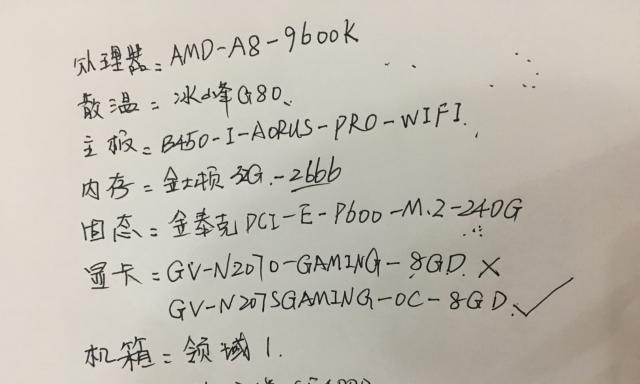 处理器=AMD-A8-9600K
散温=冰峰G80、
主板=B450-I-AORUS-PRO-WIFI.
内存=金士顿32G.-2666
固态=金泰克PCI-E-P600-M.2-240G
显卡=GV-N2070-GAMING-8GD.×
GV-N207SGAMING-OC-8GD.✓
机箱=领域1.